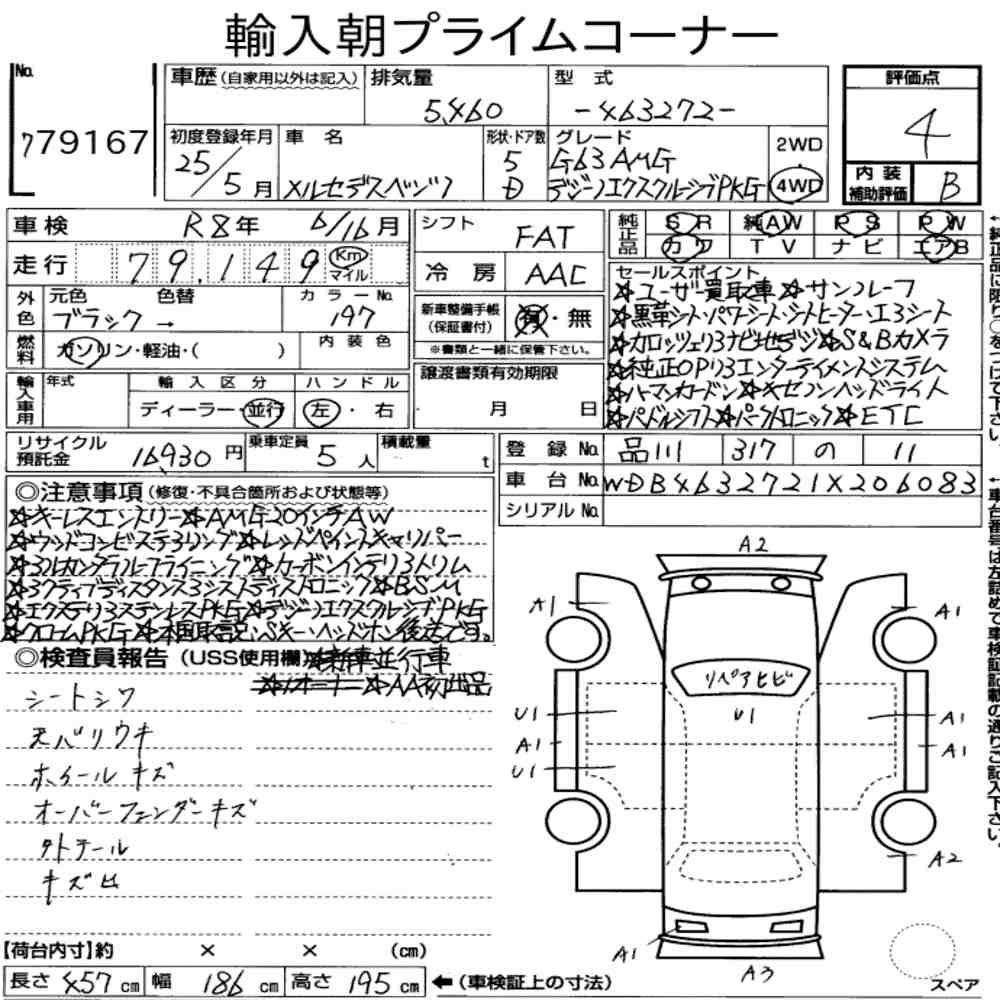 輸入朝プライムコーナー
No.
779167
車歴(自家用以外は記入)
排気量
5,460
型式
-463272-
評価点
4
初度登録年月
25/5月
車名
メルセデスベンツ
形状・ドア数
5
D
グレード
G63AMG
デジーノエクスクルーシブPKG
2WD
4WD
内装
補助評価
B
車検
R8年 6/16月
走行
79,149
Km
マイル
外色
元色
色替
ブラック→
カラーNo.
197
燃料
ガソリン・軽油・( )
内装色
輸入車用
年式
輸入区分
ディーラー・並行
ハンドル
左・右
シフト
FAT
冷房
AAC
新車整備手帳
(保証書付)
有・無
※書類と一緒に保管下さい。
譲渡書類有効期限
月 日
純正品
SR 純AW PS PW
カワ TV ナビ エアB
セールスポイント
☆ユーザー買取車☆サンルーフ
☆黒革シート・パワーシート・シートヒーター・エアシート
☆カロッツェリアナビ地デジ☆S&Bカメラ
☆純正OPリアエンターテイメントシステム
☆ハーマンカードン☆キセノンヘッドライト
☆パドルシフト☆パークトロニック☆ETC
←純正品に限り○をつけて下さい。
リサイクル
預託金
16930円
乗車定員
5人
積載量
t
登録No.
品川 317 の 11
車台No.
WDB4632721X206083
シリアルNo.
←車台番号は左詰めで車検証記載の通りご記入下さい。
◎注意事項(修復・不具合箇所および状態等)
☆キーレスエントリー☆AMG20インチAW
☆ウッドコンビステアリング☆レッドペイントキャリパー
☆アルカンタラルーフライニング☆カーボンインテリアトリム
☆アクティブディスタンスアシストディストロニック☆BSM
☆エクステリアステンレスPKG☆デジーノエクスクルーシブPKG
☆クロームPKG☆本国取説、スペキー・ヘッドホン後送です。
◎検査員報告(USS使用欄)
☆新車並行車
☆1オーナー☆AA初出品
シートシワ
天バリウキ
ホイールキズ
オーバーフェンダーキズ
タトテール
キズ
A2
A1
A1
リペアヒビ
U1
U1
A1
A1
A1
U1
A2
A1
A3
スペア
【荷台内寸】約 × × (cm)
長さ 457cm 幅 186cm 高さ 195cm ←(車検証上の寸法)